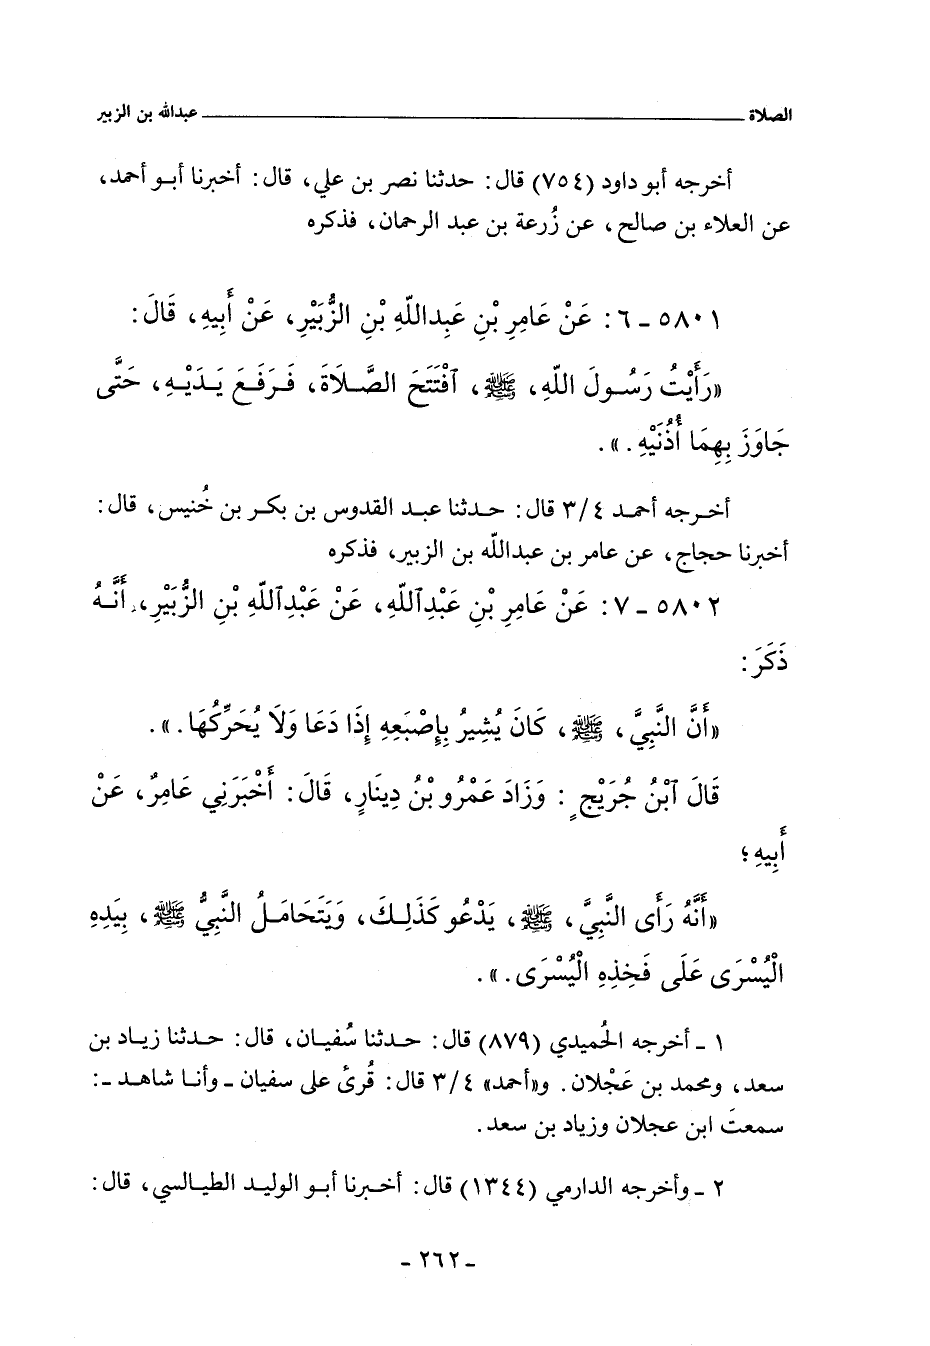 الصلاة ــــــــ عبدالله بن الزبير
أخرجه أبو داود (٧٥٤) قال: حدثنا نصر بن علي، قال: أخبرنا أبو أحمد،
عن العلاء بن صالح، عن زُرعة بن عبد الرحمان، فذكره
٥٨٠١ ـ ٦: عَنْ عَامِرِ بْنِ عَبِداللّهِ بْنِ الزُّبَيْرِ، عَنْ أَبِيهِ، قَالَ:
«رَأَيْتُ رَسُولَ اللّهِ، ﷺ، ٱفْتَتَحَ الصَّلَاةَ، فَرَفَعَ يَدَيْهِ، حَتَّى
جَاوَزَ بِهِمَا أُذُنَيْهِ.».
أخرجه أحمد ٣/٤ قال: حدثنا عبد القدوس بن بكر بن خُنيس، قال:
أخبرنا حجاج، عن عامر بن عبداللّه بن الزبير، فذكره
٥٨٠٢ ـ ٧: عَنْ عَامِرِ بْنِ عَبْدِٱللّهِ، عَنْ عَبْدِٱللّهِ بْنِ الزُّبَيْرِ، أَنَّهُ
ذَكَرَ:
«أَنَّ النَّبِيَّ، ﷺ، كَانَ يُشِيرُ بِإِصْبَعِهِ إِذَا دَعَا وَلَا يُحَرِّكُهَا.».
قَالَ ٱبْنُ جُرَيْجٍ: وَزَادَ عَمْرُو بْنُ دِينَارٍ، قَالَ: أَخْبَرَنِي عَامِرٌ، عَنْ
أَبِيهِ؛
«أَنَّهُ رَأَى النَّبِيَّ، ﷺ، يَدْعُو كَذَلِكَ، وَيَتَحَامَلُ النَّبِيُّ ﷺ، بِيَدِهِ
الْيُسْرَى عَلَى فَخِذِهِ الْيُسْرَى.».
١ ـ أخرجه الحُميدي (٨٧٩) قال: حدثنا سُفيان، قال: حدثنا زياد بن
سعد، ومحمد بن عَجْلان. و«أحمد» ٣/٤ قال: قُرئ على سفيان ـ وأنا شاهد ـ:
سمعتَ ابن عجلان وزياد بن سعد.
٢ ـ وأخرجه الدارمي (١٣٤٤) قال: أخبرنا أبو الوليد الطيالسي، قال:
ـ ٢٦٢ ـ